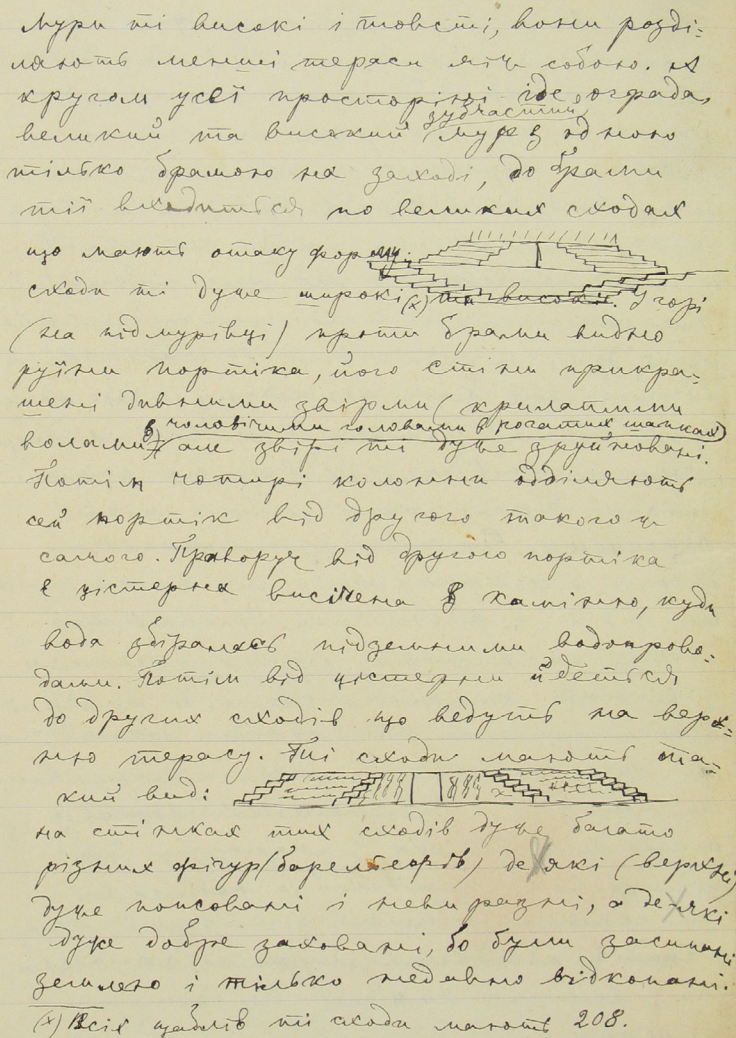 мури ті високі і товсті, вони розді-
ляють менші тераси між собою. А
кругом усеї просторіні іде ограда,
зубчастий
великий та високий мур з одною
тілько брамою на заході, до брами
тії входиться по великих сходах
що мають отаку форму:
сходи ті дуже широкі (х) та високі. Угорі
(на підмурівці) проти брами видно
руїни портіка, його стіни прикра-
шені дивними звірми (крилатими
з чоловічими головами в рогатих шапках)
волами, але звірі ті дуже зруйновані.
Потім чотирі колонни одділяють
сей портік від другого такого ж
самого. Праворуч від другого портіка
є цістерна висічена в камінню, куди
вода збіралась підземними водопрово-
дами. Потім від цістерни йдеться
до других сходів що ведуть на верх-
ню терасу. Тиї сходи мають та-
кий вид:
на стінках тих сходів дуже багато
різних фігур (барельєфів) деякі (верхні)
дуже попсовані і невиразні, а деякі
дуже добре заховані, бо були засипані
землею і тілько недавно відкопані.
(х) Всіх щаблів ті сходи мають 208.